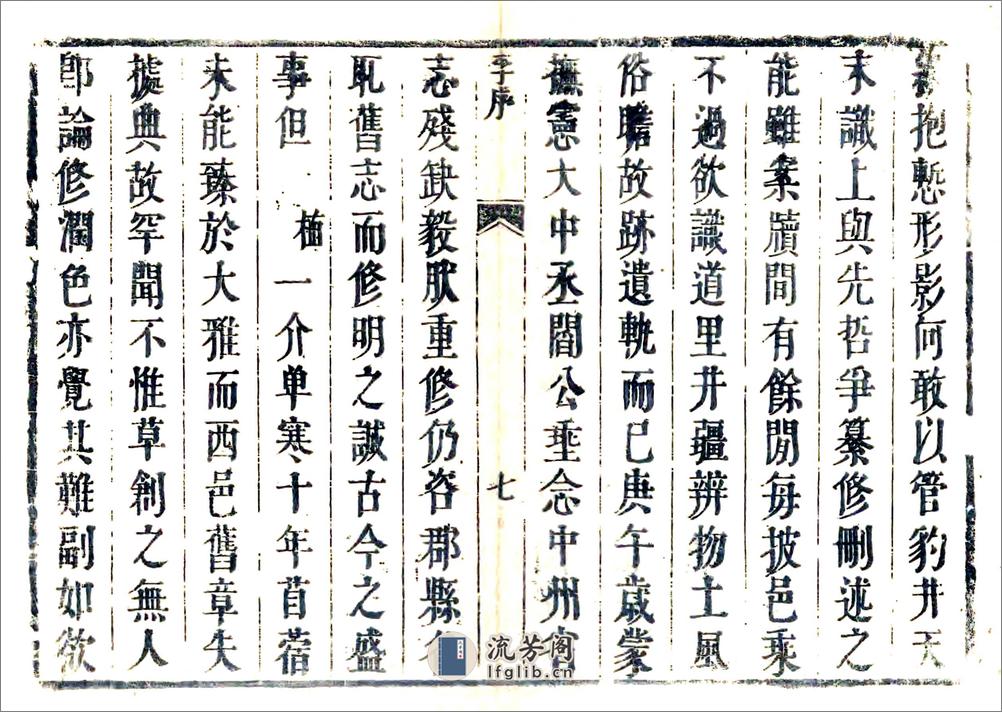 抱慙形影何敢以管豹井天
末識上與先哲爭纂修刪述之
能雖案牘間有餘閒每披邑乘
不過欲識道里井疆辨物土風
俗瞻故跡遺軌而已庚午歲蒙
撫憲大中丞閻公垂念中州
序
七
志殘缺毅肰重修仍咨郡縣
取舊志而修明之誠古今之盛
事但 一介单寒十年苜蓿
未能臻於大雅而西邑舊章失
據典故罕聞不惟草創之無人
卽論修潤色亦覺其難副如欲
流芳阁
lfglib.cn